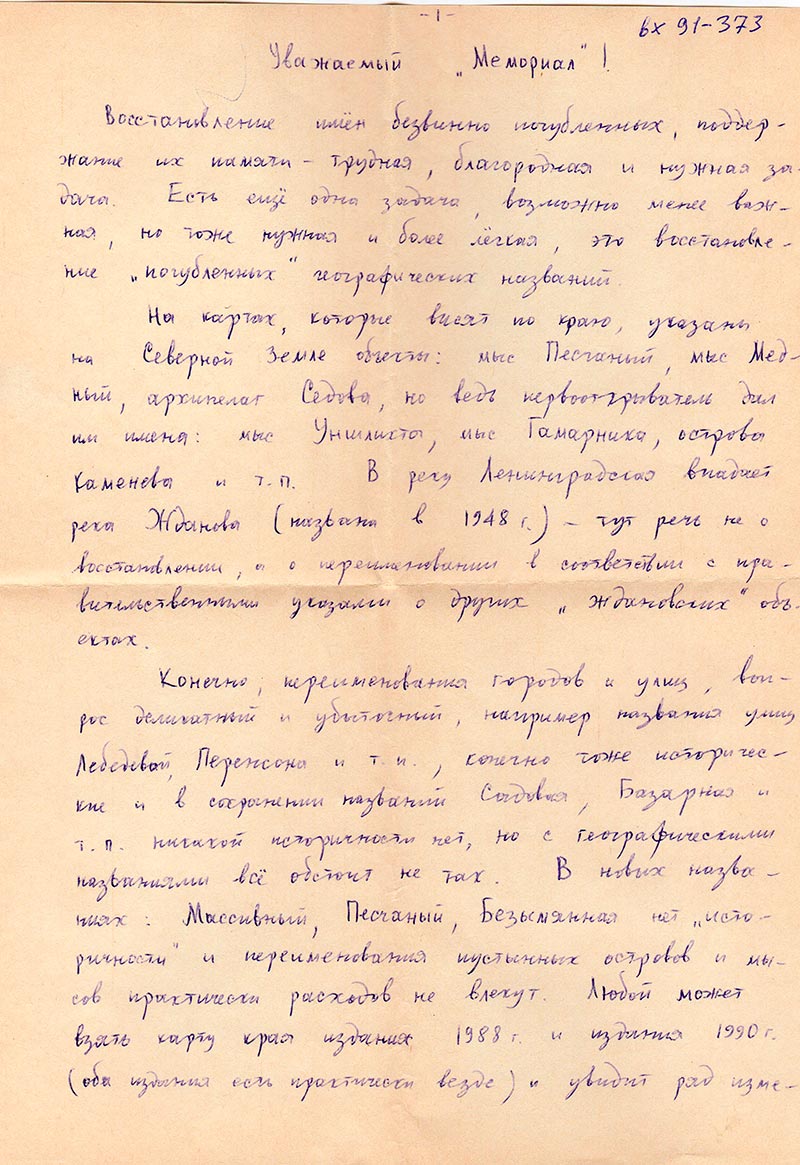 -1-
вх 91-373
Уважаемый „Мемориал"!
Восстановление имён безвинно погубленных, поддер-
жание их памяти - трудная, благородная и нужная за-
дача. Есть ещё одна задача, возможно менее важ-
ная, но тоже нужная и более лёгкая, это восстановле-
ние „погубленных" географических названий.
На картах, которые висят по краю, указаны
на Северной Земле объекты: мыс Песчаный, мыс Мед-
ный, архипелаг Седова, но ведь первооткрыватель дал
им имена: мыс Уншлихта, мыс Гамарника, острова
Каменева и т.п. В реку Ленинградская впадает
река Жданова (названа в 1948 г.) - тут речь не о
восстановлении, а о переименовании в соответствии с пра-
вительственными указами о других „Ждановских" объ-
ектах.
Конечно, переименования городов и улиц, воп-
рос деликатный и убыточный, например названия улиц
Лебедевой, Перенсона и т.п., конечно тоже историчес-
кие и в сохранении названий Садовая, Базарная и
т.п. никакой историчности нет, но с географическими
названиями всё обстоит не так. В новых назва-
ниях: Массивный, Песчаный, Безымянная нет „исто-
ричности" и переименования пустынных островов и мы-
сов практически расходов не влекут. Любой может
взять карту края издания 1988 г. и издания 1990 г.
(оба издания есть практически везде) и увидит ряд изме-